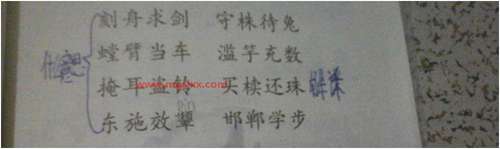 刻舟求剑 守株待兔
螳臂当车 滥竽充数
掩耳盗铃 买椟还珠
东施效颦 邯郸学步